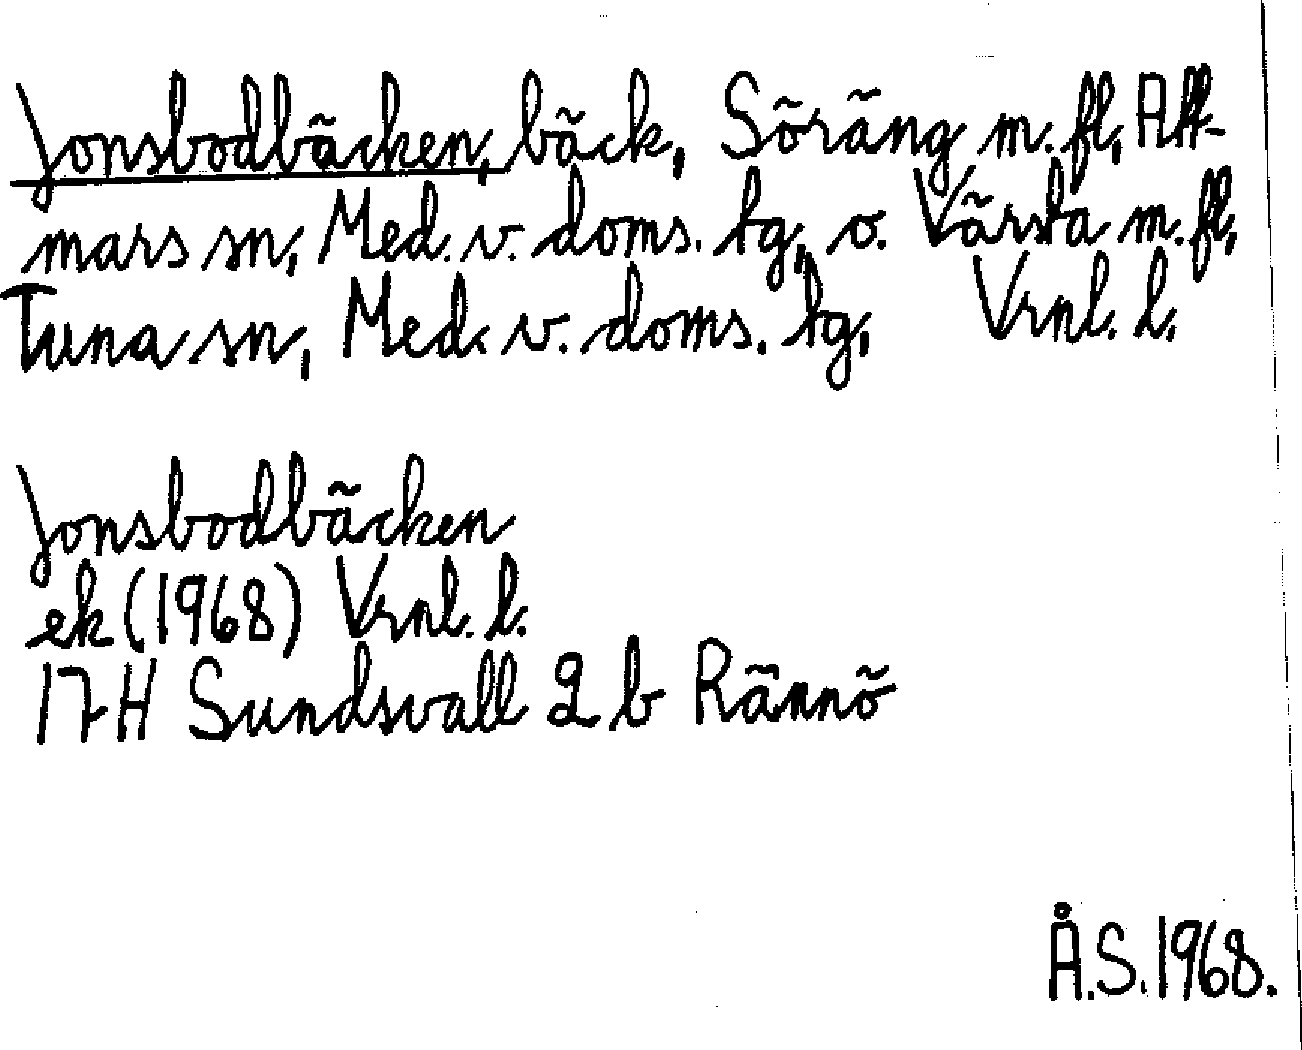 Jonsbodbäcken, bäck, Söräng m. fl, Att-
mars sn, Med. v. doms. tg, o. Värsta m. fl,
Tuna sn, Med. v. doms. tg, Vrnl. l.
Jonsbodbäcken
ek (1968) Vrnl. l.
17H Sundsvall 2 b Rännö
Å.S. 1968.